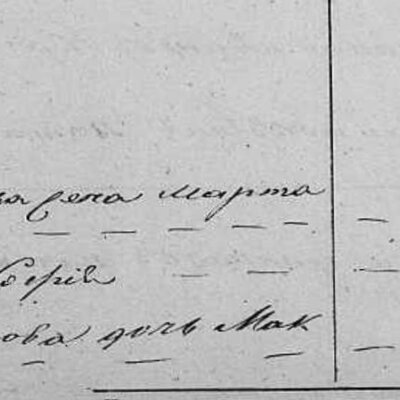 ва жена Марта
берiя
ова дочь Мак